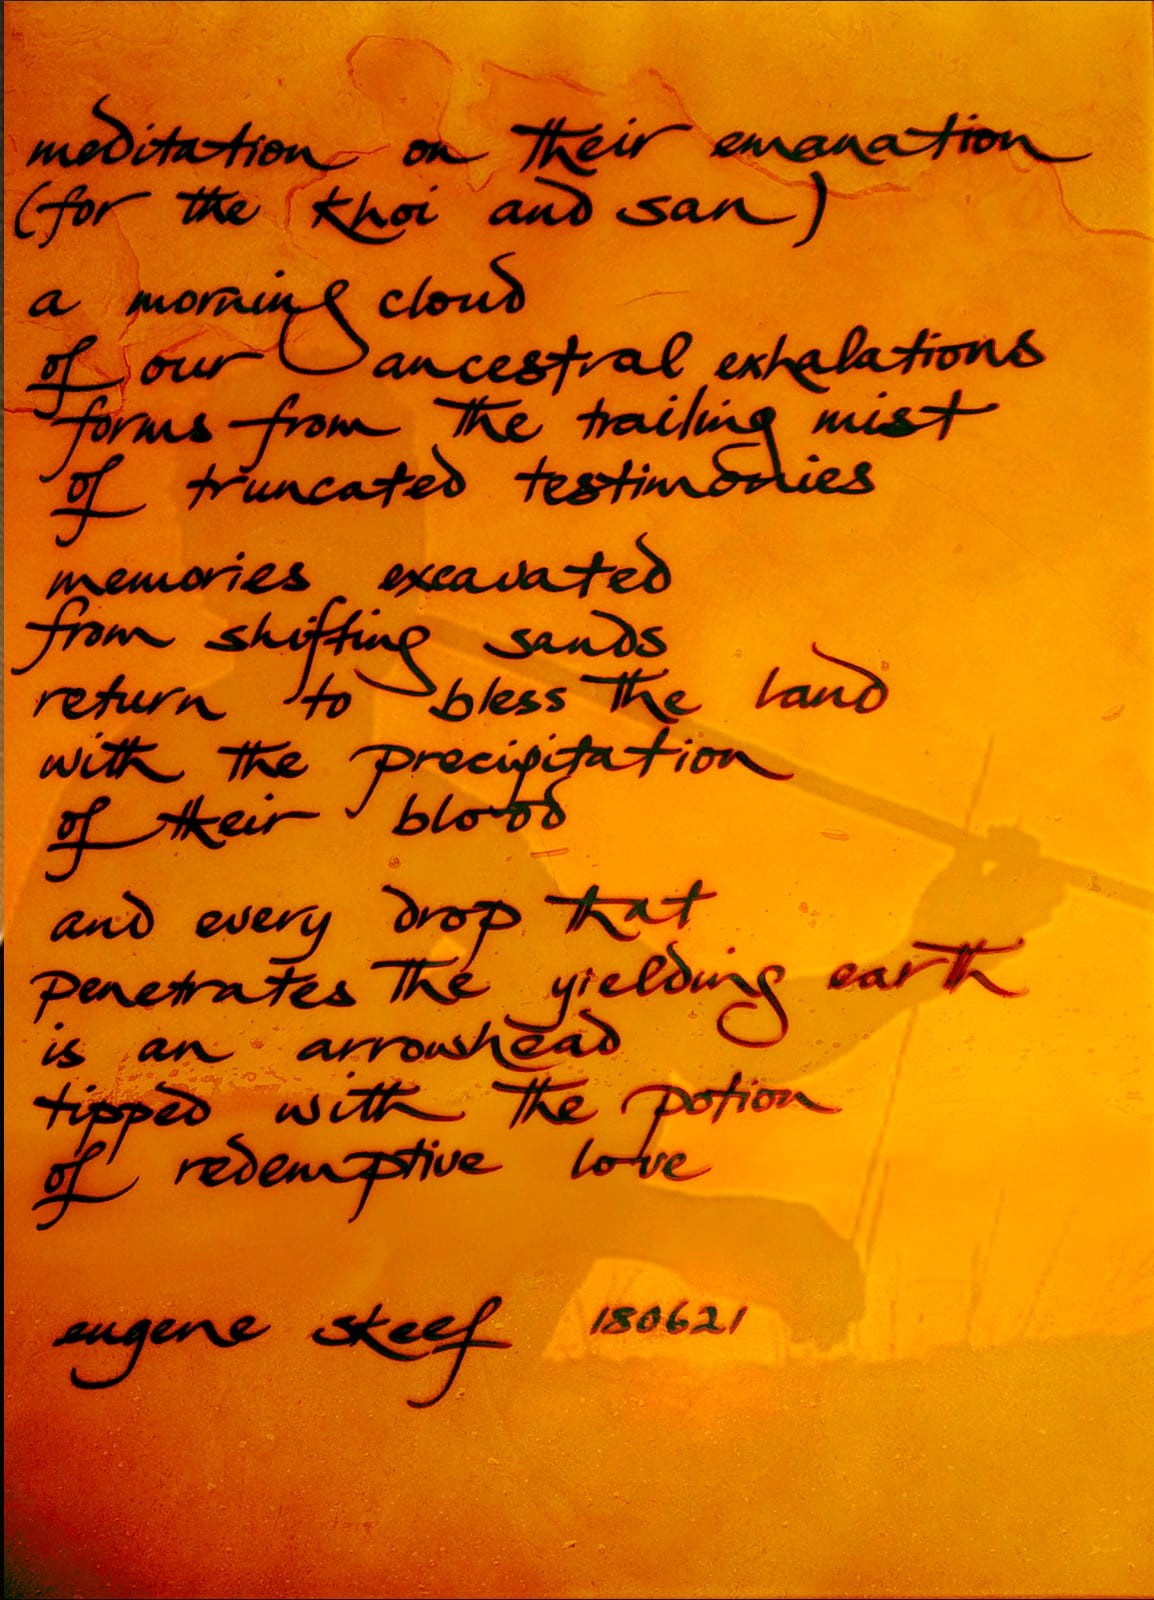 meditation on their emanation
(for the khoi and san)
a morning cloud
of our ancestral exhalations
forms from the trailing mist
of truncated testimonies
memories excavated
from shifting sands
return to bless the land
with the precipitation
of their blood
and every drop that
penetrates the yielding earth
is an arrowhead
tipped with the potion
of redemptive love
eugene skeef 180621